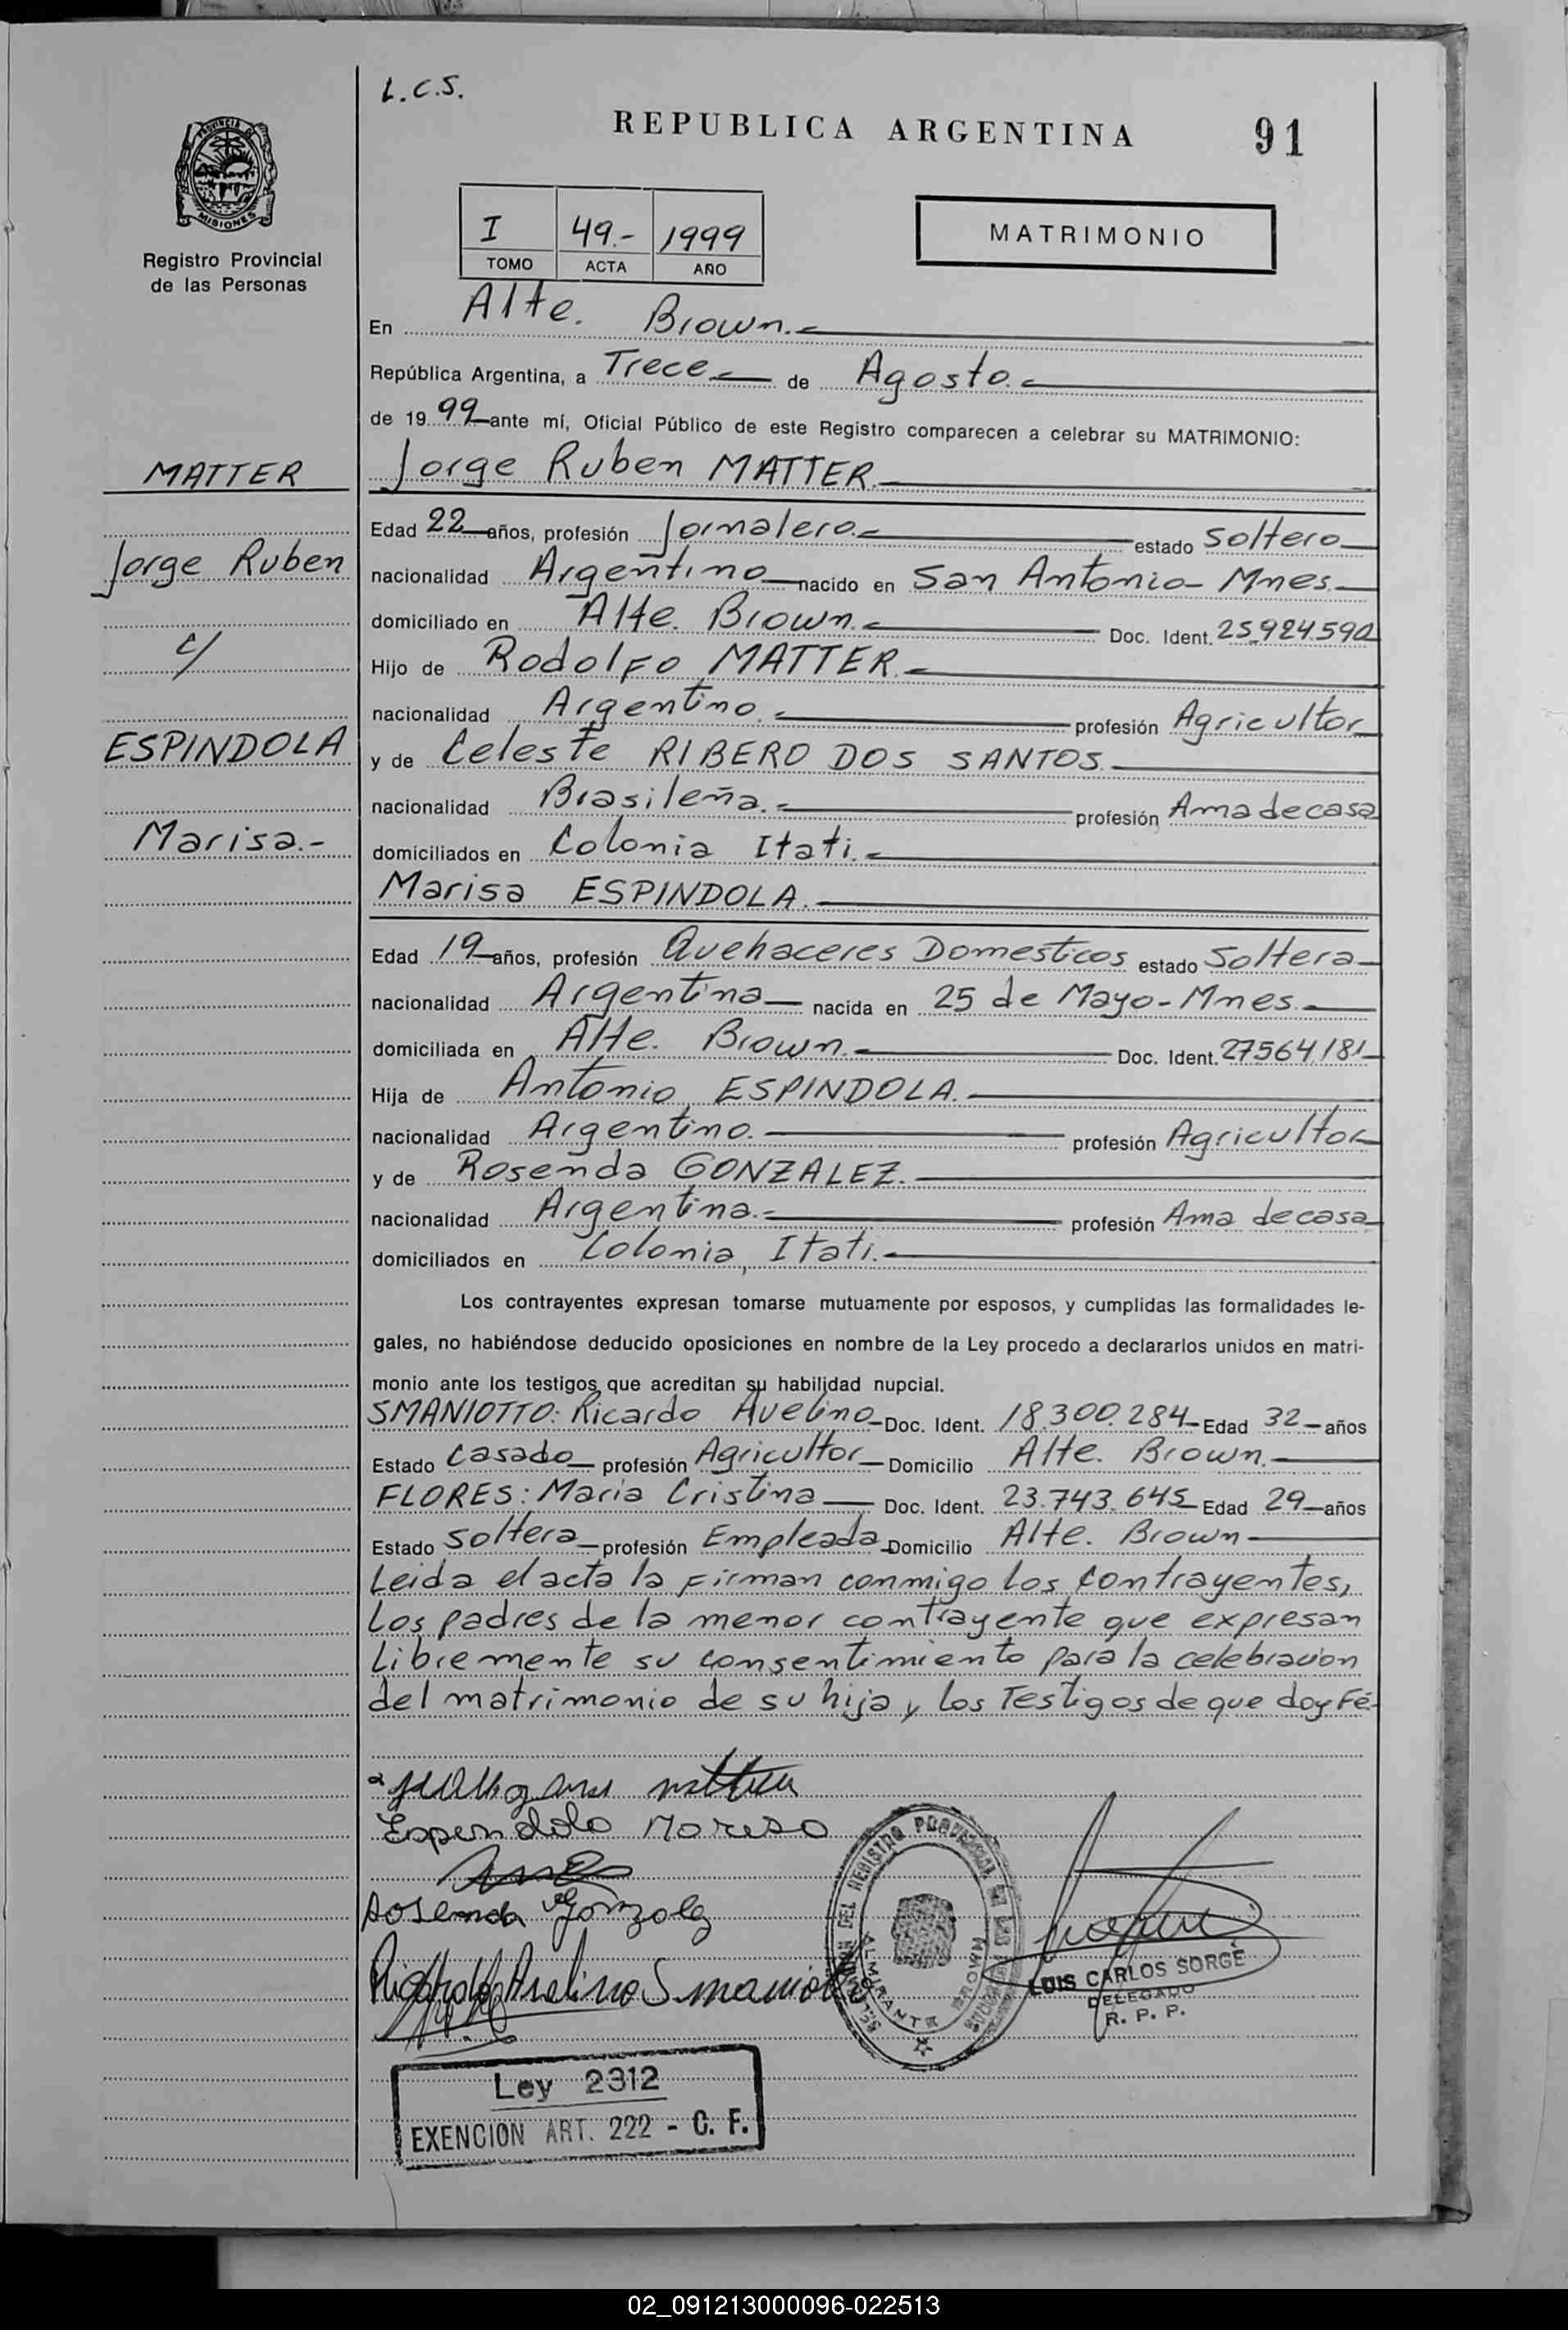 L.C.S.
REPUBLICA ARGENTINA
91
PROVINCIA DE
MISIONES
Registro Provincial
de las Personas
I 49.- 1999
TOMO ACTA AÑO
MATRIMONIO
En Alte. Brown.-
República Argentina, a Trece de Agosto.-
de 1999 ante mí, Oficial Público de este Registro comparecen a celebrar su MATRIMONIO:
MATTER
Jorge Ruben
c/
ESPINDOLA
Marisa.-
Jorge Ruben MATTER.
Edad 22 años, profesión Jornalero.- estado Soltero
nacionalidad Argentino nacido en San Antonio - Mnes.
domiciliado en Alte. Brown.- Doc. Ident. 25.924.592
Hijo de Rodolfo MATTER.-
nacionalidad Argentino.- profesión Agricultor
y de Celeste RIBERO DOS SANTOS.
nacionalidad Brasileña.- profesión Ama de casa
domiciliados en Colonia Itati.-
Marisa ESPINDOLA.
Edad 19 años, profesión Quehaceres Domesticos estado Soltera
nacionalidad Argentina nacida en 25 de Mayo - Mnes.
domiciliada en Alte. Brown.- Doc. Ident. 27564181
Hija de Antonio ESPINDOLA.
nacionalidad Argentino. profesión Agricultor
y de Rosenda GONZALEZ.
nacionalidad Argentina.- profesión Ama de casa
domiciliados en Colonia, Itati.
Los contrayentes expresan tomarse mutuamente por esposos, y cumplidas las formalidades le-
gales, no habiéndose deducido oposiciones en nombre de la Ley procedo a declararlos unidos en matri-
monio ante los testigos que acreditan su habilidad nupcial.
SMANIOTTO: Ricardo Avelino Doc. Ident. 18.300.284 Edad 32 años
Estado Casado profesión Agricultor Domicilio Alte. Brown.
FLORES: Maria Cristina Doc. Ident. 23.743.645 Edad 29 años
Estado Soltera profesión Empleada Domicilio Alte. Brown
Leida el acta la firman conmigo los contrayentes,
los padres de la menor contrayente que expresan
libremente su consentimiento para la celebracion
del matrimonio de su hija y los Testigos de que doy Fé.-
Rosenda Gonzalez
Ricardo Avelino Smaniotto
DEL REGISTRO PROVINCIAL DE LAS
ALMIRANTE BROWN
LUIS CARLOS SORGE
DELEGADO
R. P. P.
Ley 2312
EXENCION ART. 222 - C. F.
02_091213000096-022513